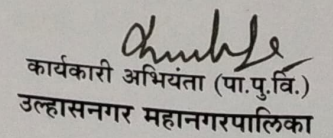 कार्यकारी अभियंता (पा.पु.वि.)
उल्हासनगर महानगरपालिका